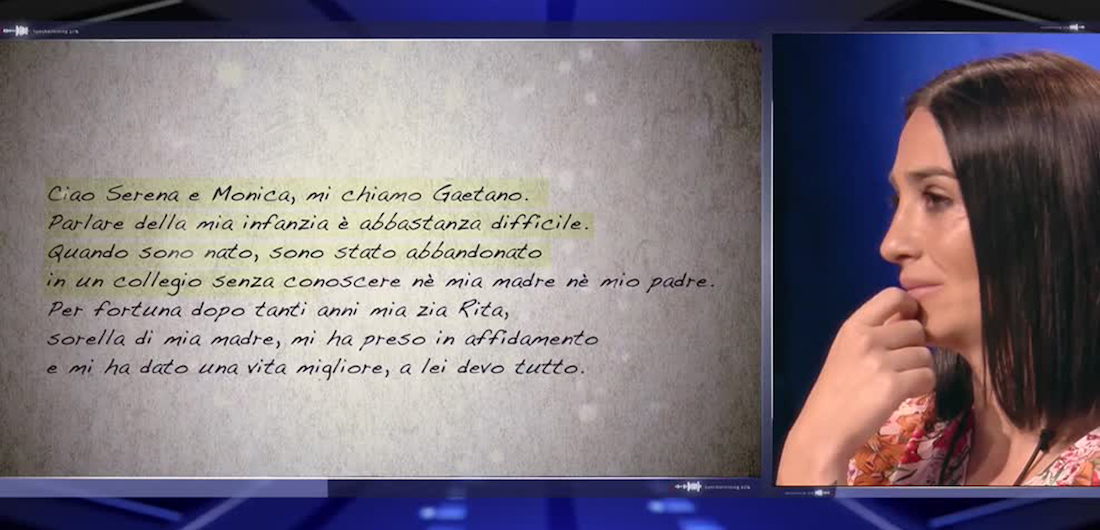 Ciao Serena e Monica, mi chiamo Gaetano.
Parlare della mia infanzia è abbastanza difficile.
Quando sono nato, sono stato abbandonato
in un collegio senza conoscere nè mia madre nè mio padre.
Per fortuna dopo tanti anni mia zia Rita,
sorella di mia madre, mi ha preso in affidamento
e mi ha dato una vita migliore, a lei devo tutto.